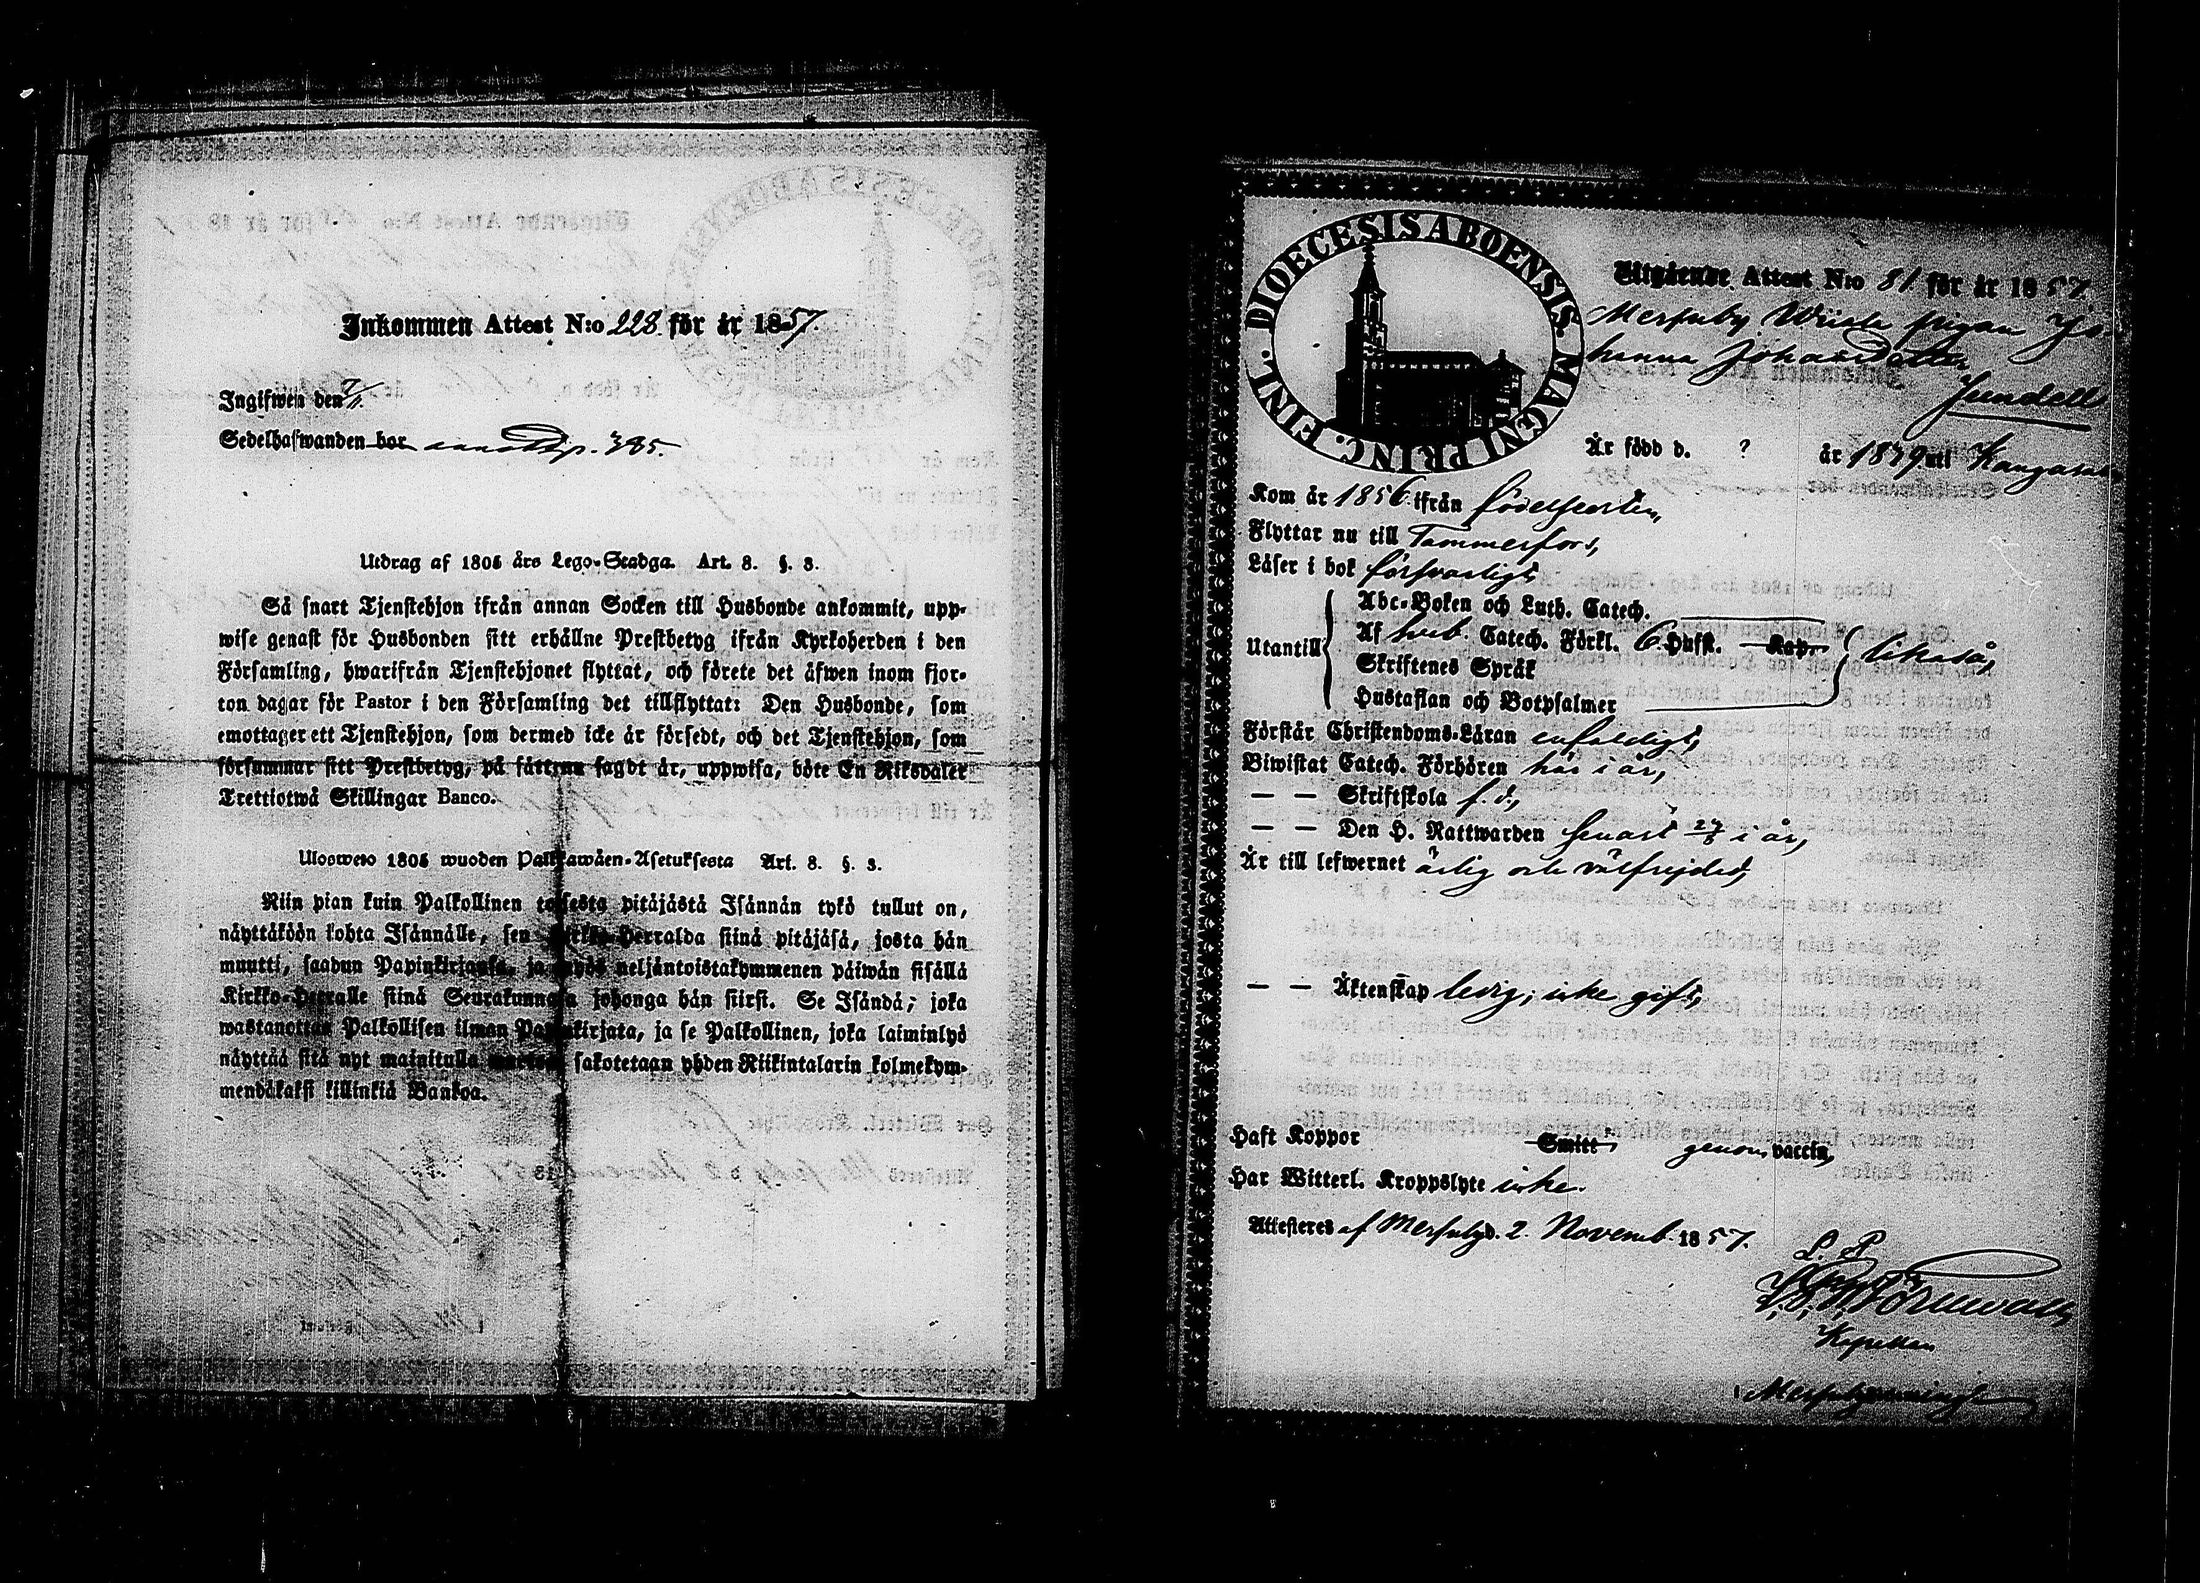 Inkommen Attest N:o 228 för år 1857.
Ingifwen den
Sedelhafwanden bor 385.
Utdrag af 1805 års Lego-Stadga. Art. 8. §. 3.
Så snart Tjenstehjon ifrån annan Socken till Husbonde ankommit, upp-
wise genast för Husbonden sitt erhållne Prestbetyg ifrån Kyrkoherden i den
Församling, hwarifrån Tjenstehjonet flyttat, och förete det äfwen inom fjor-
ton dagar för Pastor i den Församling det tillflyttat: Den Husbonde, som
emottager ett Tjenstehjon, som dermed icke är försedt, och det Tjenstehjon, som
försummar sitt Prestbetyg, på sätt nu sagdt är, uppwisa, böte En Riksdaler
Trettiotwå Skillingar Banco.
Ulosweto 1805 wuoden Palkkawäen-Asetuksesta Art. 8. §. 3.
Niin pian kuin Palkollinen toisesta pitäjästä Isännän tykö tullut on,
näyttäköön kohta Isännälle, sen Kirkko-Herralda siinä pitäjäsä, josta hän
muutti, saadun Papinkirjansa, ja myös neljäntoistakymmenen päiwän sisällä
Kirkko-Herralle siinä Seurakunnasa johonga hän siirsi. Se Isändä, joka
wastanottaa Palkollisen ilman Papinkirjata, ja se Palkollinen, joka laiminlyö
näyttää sitä nyt mainitulla muotoa sakotetaan yhden Riikintalarin kolmekym-
mendäkaksi killinkiä Bankoa.
DIOECESIS ABOENSIS. MAGNI PRINC. FINL.
Utgående Attest N:o 81 för år 1857.
Mersuby pigan Jo
hanna Johansdotter
Sundell
Är född d. ? år 1829 uti Kangasala
Kom år 1856 ifrån födelseorten,
Flyttar nu till Tammerfors,
Läser i bok försvarligt
Utantill
Abc-Boken och Luth. Catech.
Af Catech. Förkl. 6 Hufst. Kap.
Skriftenes Språk
Hustaflan och Botpsalmer
likaså,
Förstår Christendoms-Läran enfaldigt,
Biwistat Catech. Förhören här i år,
— — Skriftskola f. d.,
— — Den H. Nattwarden senast i år,
Är till lefwernet ärlig och välfrejdad,
— — Äktenskap ledig; icke gift,
Haft Koppor Smitt genom vaccin,
Har Witterl. Kroppslyte icke.
Attesteres af Mersuby d. 2 Novemb. 1857.